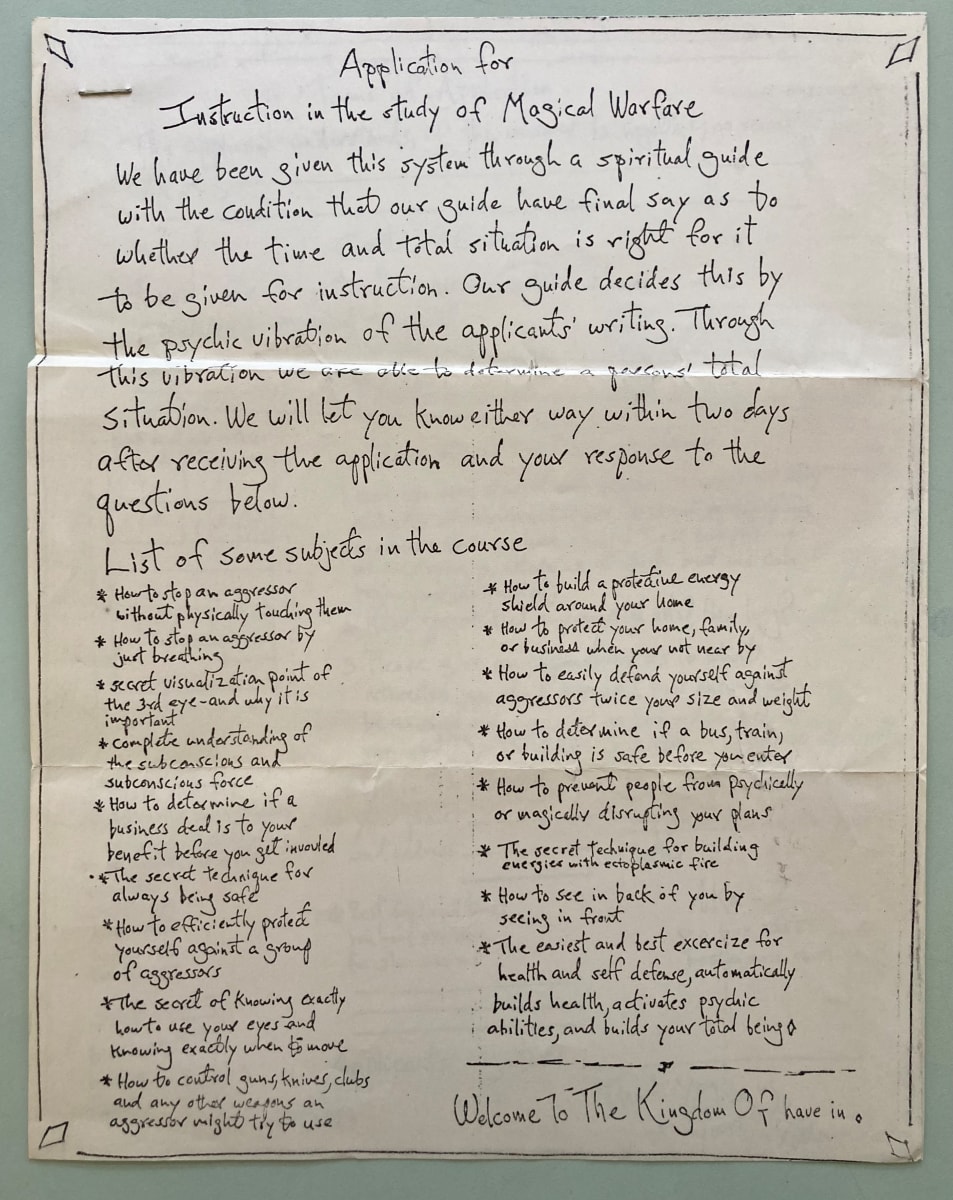 Application for
Instruction in the study of Magical Warfare
We have been given this system through a spiritual guide
with the condition that our guide have final say as to
whether the time and total situation is right for it
to be given for instruction. Our guide decides this by
the psychic vibration of the applicants' writing. Through
this vibration we are able to determine a persons' total
situation. We will let you know either way within two days
after receiving the application and your response to the
questions below.
List of some subjects in the course
* How to stop an aggressor
without physically touching them
* How to stop an aggressor by
just breathing
* secret visualization point of
the 3rd eye-and why it is
important
* complete understanding of
the subconscious and
subconscious force
* How to determine if a
business deal is to your
benefit before you get invovled
* The secret technique for
always being safe
* How to efficiently protect
yourself against a group
of aggressors
* The secret of knowing exactly
how to use your eyes and
knowing exactly when to move
* How to control guns, knives, clubs
and any other weapons an
aggressor might try to use
* How to build a protective energy
shield around your home
* How to protect your home, family,
or business when your not near by
* How to easily defend yourself against
aggressors twice your size and weight
* How to determine if a bus, train,
or building is safe before you enter
* How to prevent people from psychically
or magically disrupting your plans
* The secret technique for building
energies with ectoplasmic fire
* How to see in back of you by
seeing in front
* The easiest and best excercize for
health and self defense, automatically
builds health, activates psychic
abilities, and builds your total being
Welcome To The Kingdom Of have in.